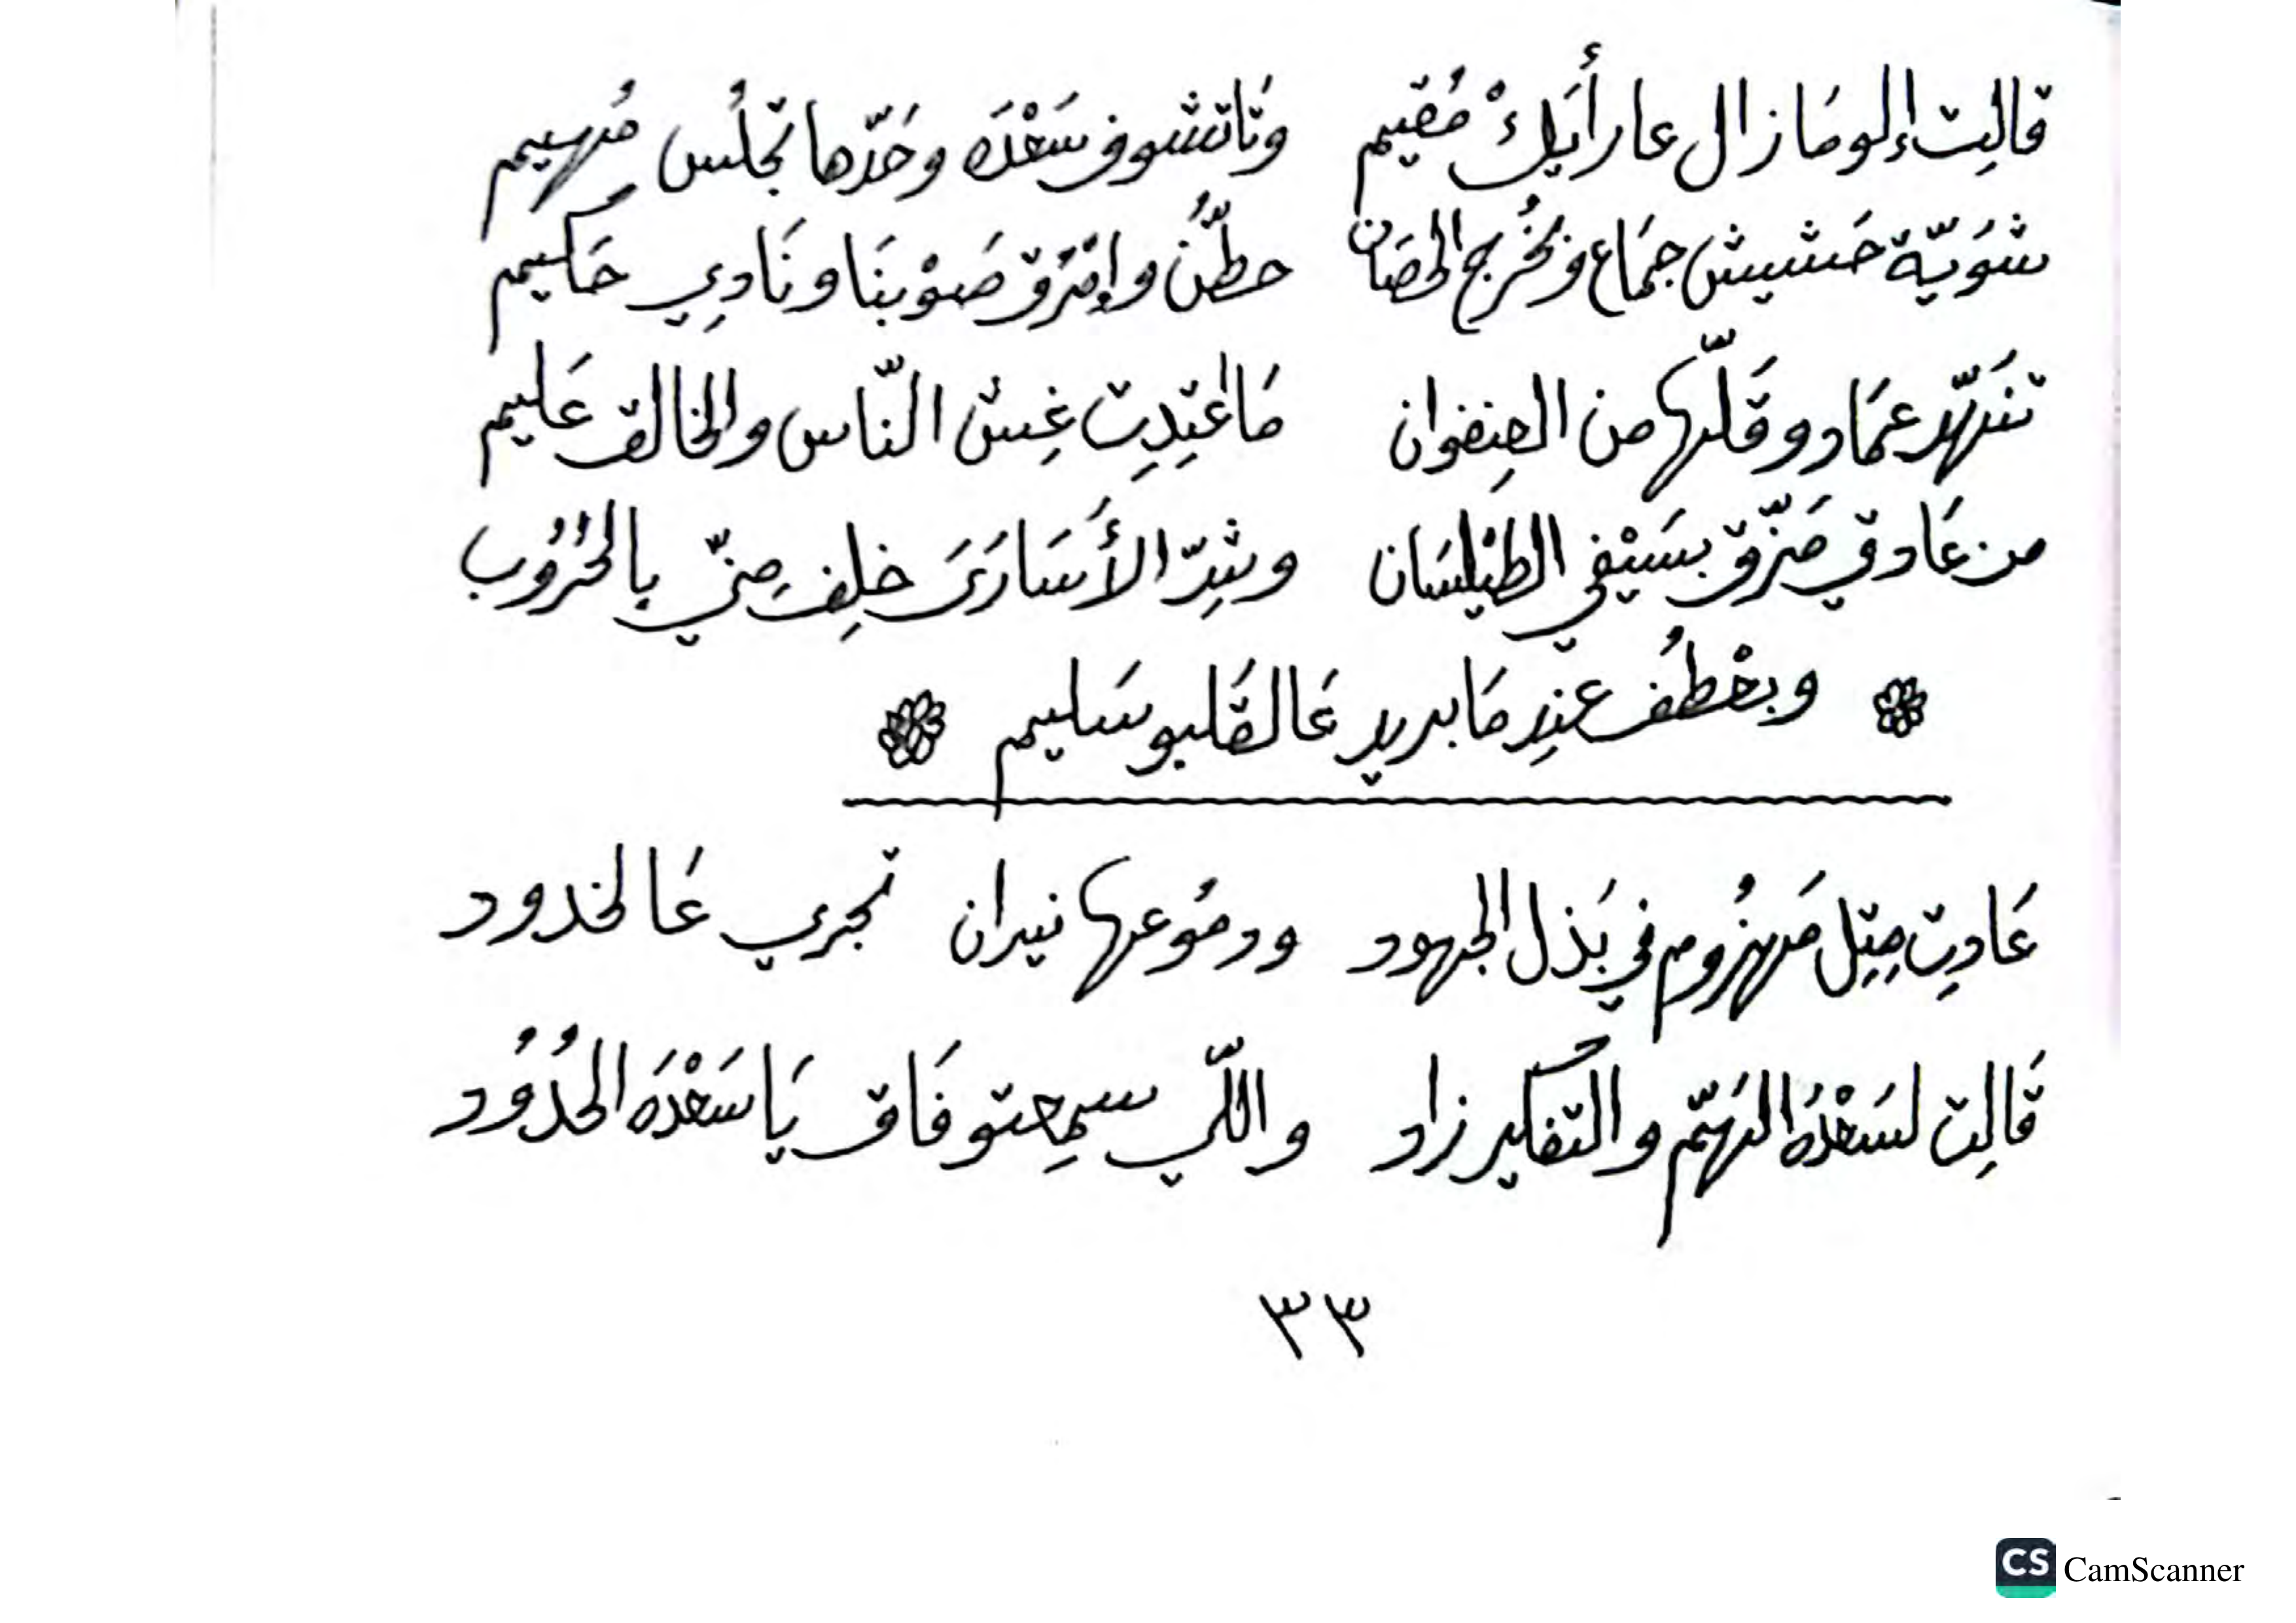 قالِت إلو مَا زال عا رأيَكْ مُقيم وتَاتشوف سَعْدَه وحَدّها تجلُس مُهيم
شوَيّة حَشيش جمَاع وخُرج الحصَان حطّن وإمْرُق صَوْبنَا ونَادِي حَكيم
تنَهّد عمَاد وقَلّها من العِنفوان مَا عْتِدِت غِش النّاس والخالق عَليم
من عَادتي مَزّق بسَيْفي الطيْلسَان وشِدّ الأسَارَى خلِف منّي بالحُرُوب
وبعْطُف عندِما بريد عَالقَلبو سَليم
عَادِت مِتِل مَهزُوم في بَذل الجهود ودمُوعها نيران تجري عَالخدود
قَالِت لسَعْدَه الهَمّ والتفكير زاد واللّي سمِعتو فَاق يَا سَعْدَه الحُدُود
٣٣
CS CamScanner